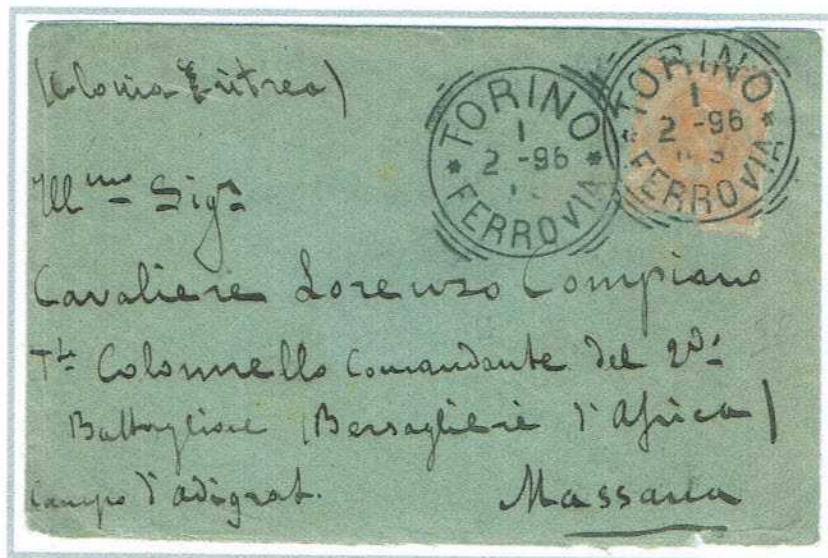 (Colonia Eritrea)
TORINO
1
2 -96
* *
FERROVIA
TORINO
1
2 -96
* *
FERROVIA
Ill.mo Sig.r
Cavaliere Lorenzo Compiano
T.te Colonnello Comandante del 2.do
Battaglione (Bersaglieri d'Africa)
Campo d'adigrat.
Massaua